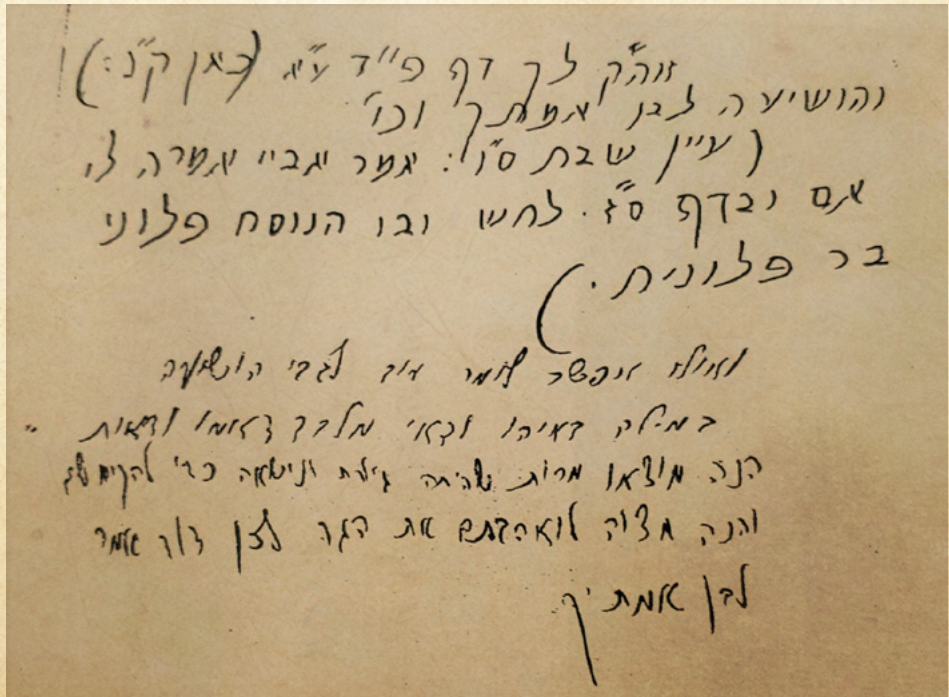 זוה״ק לך דף פ״ד ע״א (כאן ק״נ:)
והושיעה לבן אמתך וכו'
(עיין שבת ס״ו: אמר אביי אמרה לי
אם ובדף ס״ז. לחש ובו הנוסח פלוני
בר פלונית.)
ואולי אפשר לומר עוד לגבי הושיעה
במילה דאיהו ודאי מלכך דאמו ודאית
הנה מוצאו מרות שהיתה גיורת ונישאה כדי להקים
והנה מצוה לואהבתם את הגר לכן דוד אמר
לבן אמתיך